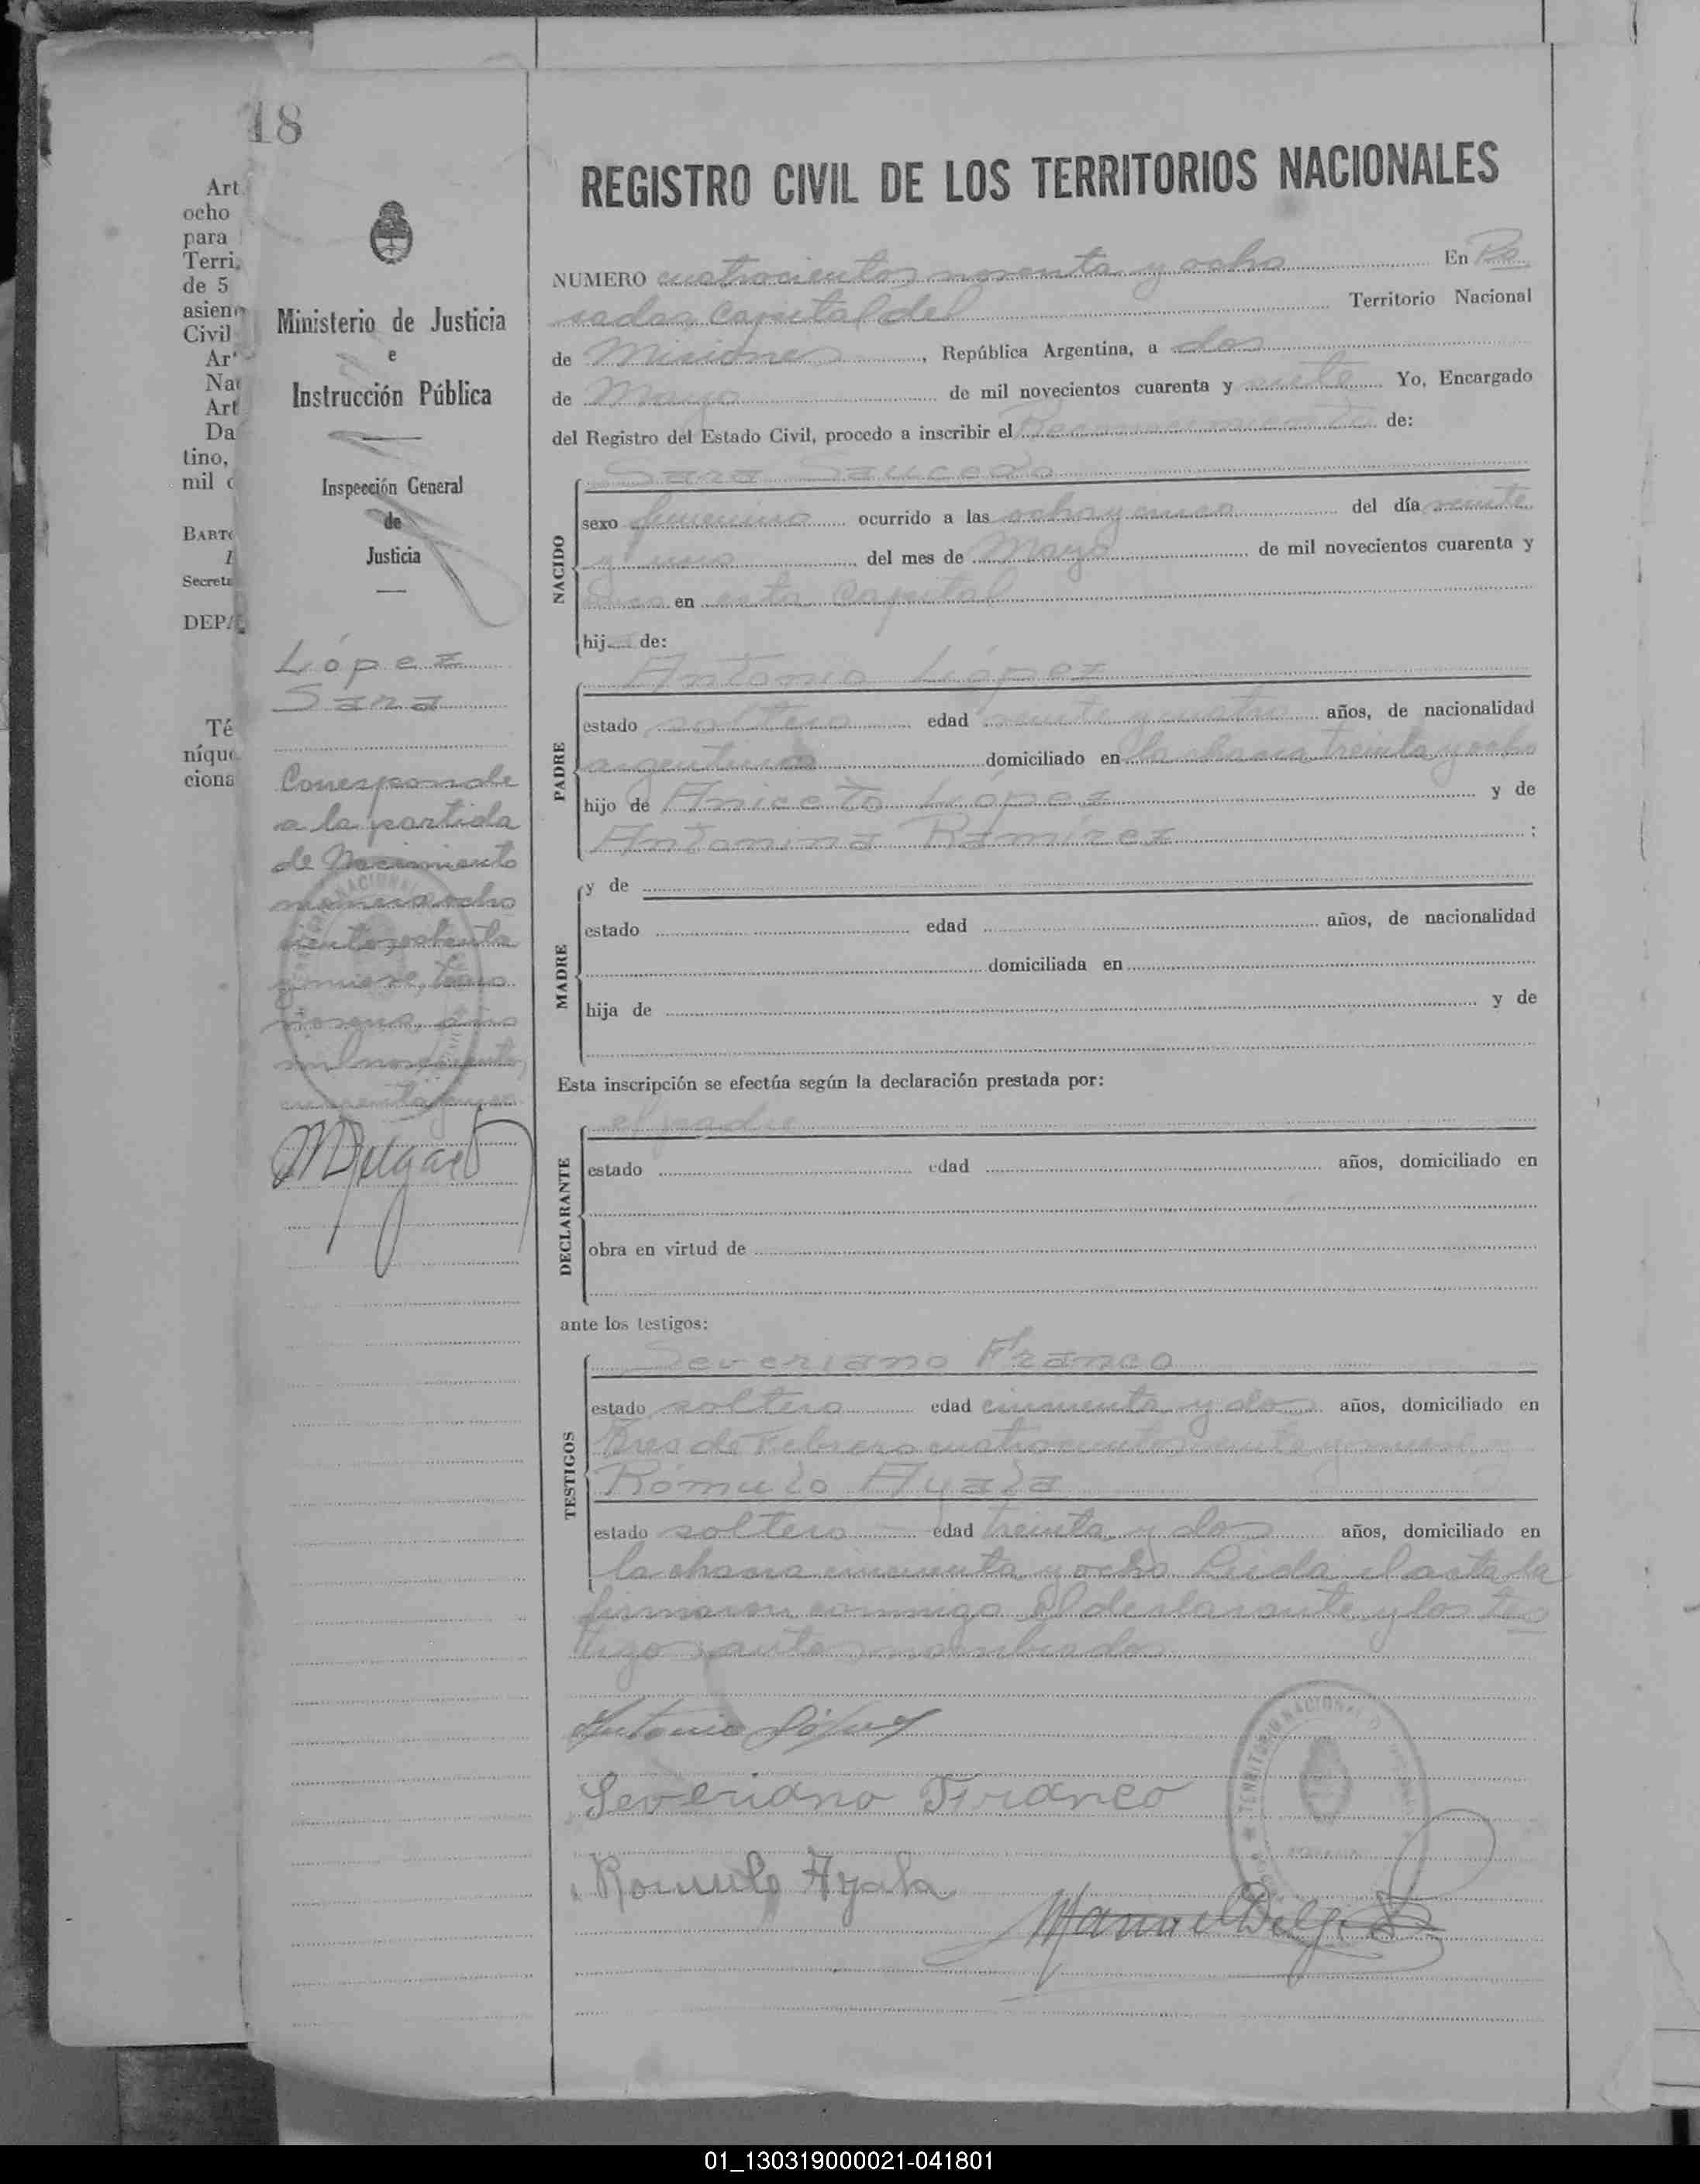 18
Art.
ocho
para
Terri.
de 5
asien
Civil
Ar
Na
Art
Da
tino,
mil
BARTO
Secreta
DEP.
Té
níque
ciona
Ministerio de Justicia
e
Instrucción Pública
Inspección General
de
Justicia
López
Sara
Corresponde
a la partida
de Nacimiento
numero ocho
cientos ochenta
y nueve, tomo
mil novecientos
MDelgado
REGISTRO CIVIL DE LOS TERRITORIOS NACIONALES
NUMERO cuatrocientos noventa y ocho En Po
sadas, Capital del Territorio Nacional
de Misiones, República Argentina, a dos
de Mayo de mil novecientos cuarenta y siete Yo, Encargado
del Registro del Estado Civil, procedo a inscribir el Reconocimiento de:
NACIDO
Sara Saucedo
sexo femenino ocurrido a las ocho y cinco del día veinte
y uno del mes de Mayo de mil novecientos cuarenta y
en esta Capital
hij de:
PADRE
Antonio López
estado soltero edad veinte y cuatro años, de nacionalidad
argentino domiciliado en la chacra treinta y ocho
hijo de Aniceto López y de
Antonina Ramírez ;
MADRE
y de
estado edad años, de nacionalidad
domiciliada en
hija de y de
Esta inscripción se efectúa según la declaración prestada por:
DECLARANTE
el padre
estado edad años, domiciliado en
obra en virtud de
ante los testigos:
TESTIGOS
Severiano Franco
estado soltero edad cincuenta y dos años, domiciliado en
Tres de Febrero cuatrocientos
Rómulo Ayala
estado soltero edad treinta y dos años, domiciliado en
la chacra cincuenta y ocho Leida el acta la
firmaron conmigo el declarante y los tes
tigos antes nombrados
Antonio López
Severiano Franco
Romulo Ayala
Manuel Delgado
TERRITORIO NACIONAL D
01_130319000021-041801